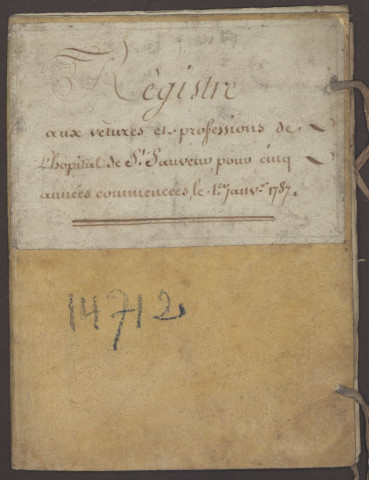 Régistre
aux vetures et professions de
L'hopital de St. Sauveur pour cinq
années commencées le 1er. Janvr. 1787.
14712